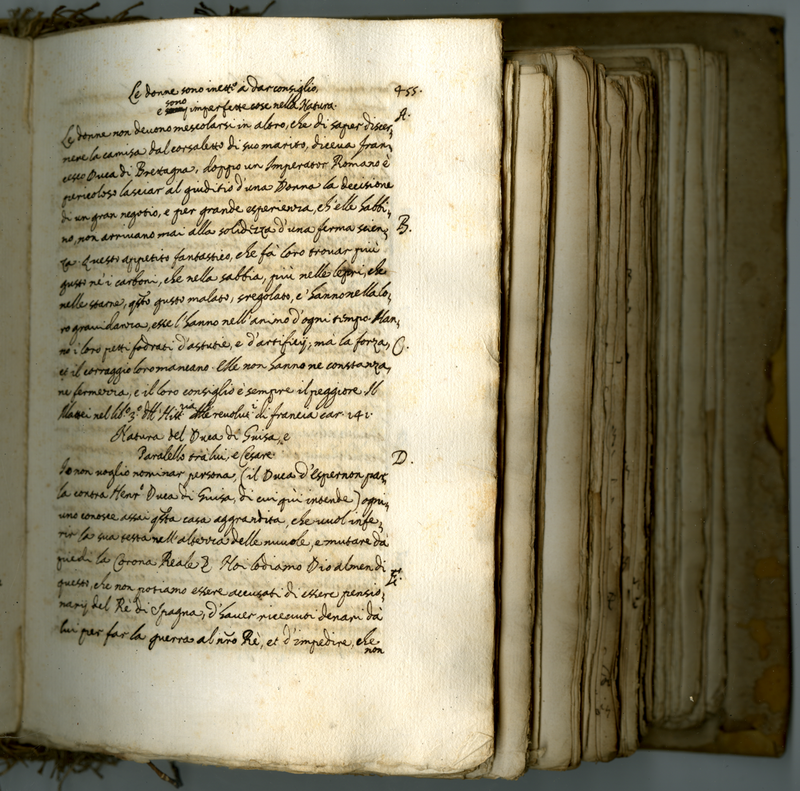 Le donne sono inett.e à dar consiglio, 455.
e sono imperfette cose nella Natura.
A.
Le donne non devono mescolarsi in altro, che di saper discer,
nere la camisa dal corsaletto di suo marito, diceva fran,
cesco Duca di Bretagna, doppo un Imperator Romano è
pericoloso lasciar al giuditio d'una Donna la decisione
di un gran negotio, e per grande esperienza, ch'elle habbi,
B.
no, non arrivano mai alla solidezza d'una ferma scien,
za. Questo appetito fantastico, che fà loro trovar più
gusto ne i carboni, che nella sabbia, più nelle lepri, che
nelle starne, q.sto gusto malato, sregolato, c'hanno nella lo,
ro gravidanza, esse l'hanno nell'animo d'ogni tempo. Han,
no i loro petti fodrati d'astutie, e d'artifitij; ma la forza,
C.
et il corraggio loro mancano. Elle non hanno ne constanza,
ne fermezza, e il loro consiglio è sempre il peggiore. Il
Mattei nel lib.o 3.o dell' Hist. delle revolut. di francia car. 141.
Natura del Duca di Guisa, e
Paralello trà lui, e Cesare.
D.
Io non voglio nominar persona, (il Duca d'Espernon par,
la contra Henr.o Duca di Guisa, di cui quì intende) ogni,
uno conosce assai q.sta casa aggrandita, che vuol infe,
rir la sua testa nell'altezza delle nuvole, e mutare da
piedi la Corona Reale. Noi lodiamo Dio almen di
E.
questo, che non possiamo essere accusati di essere pensio,
narij del Rè di Spagna, d'haver ricevuti denari dà
lui per far la guerra al n'ro Rè, et d'impedire, che
non